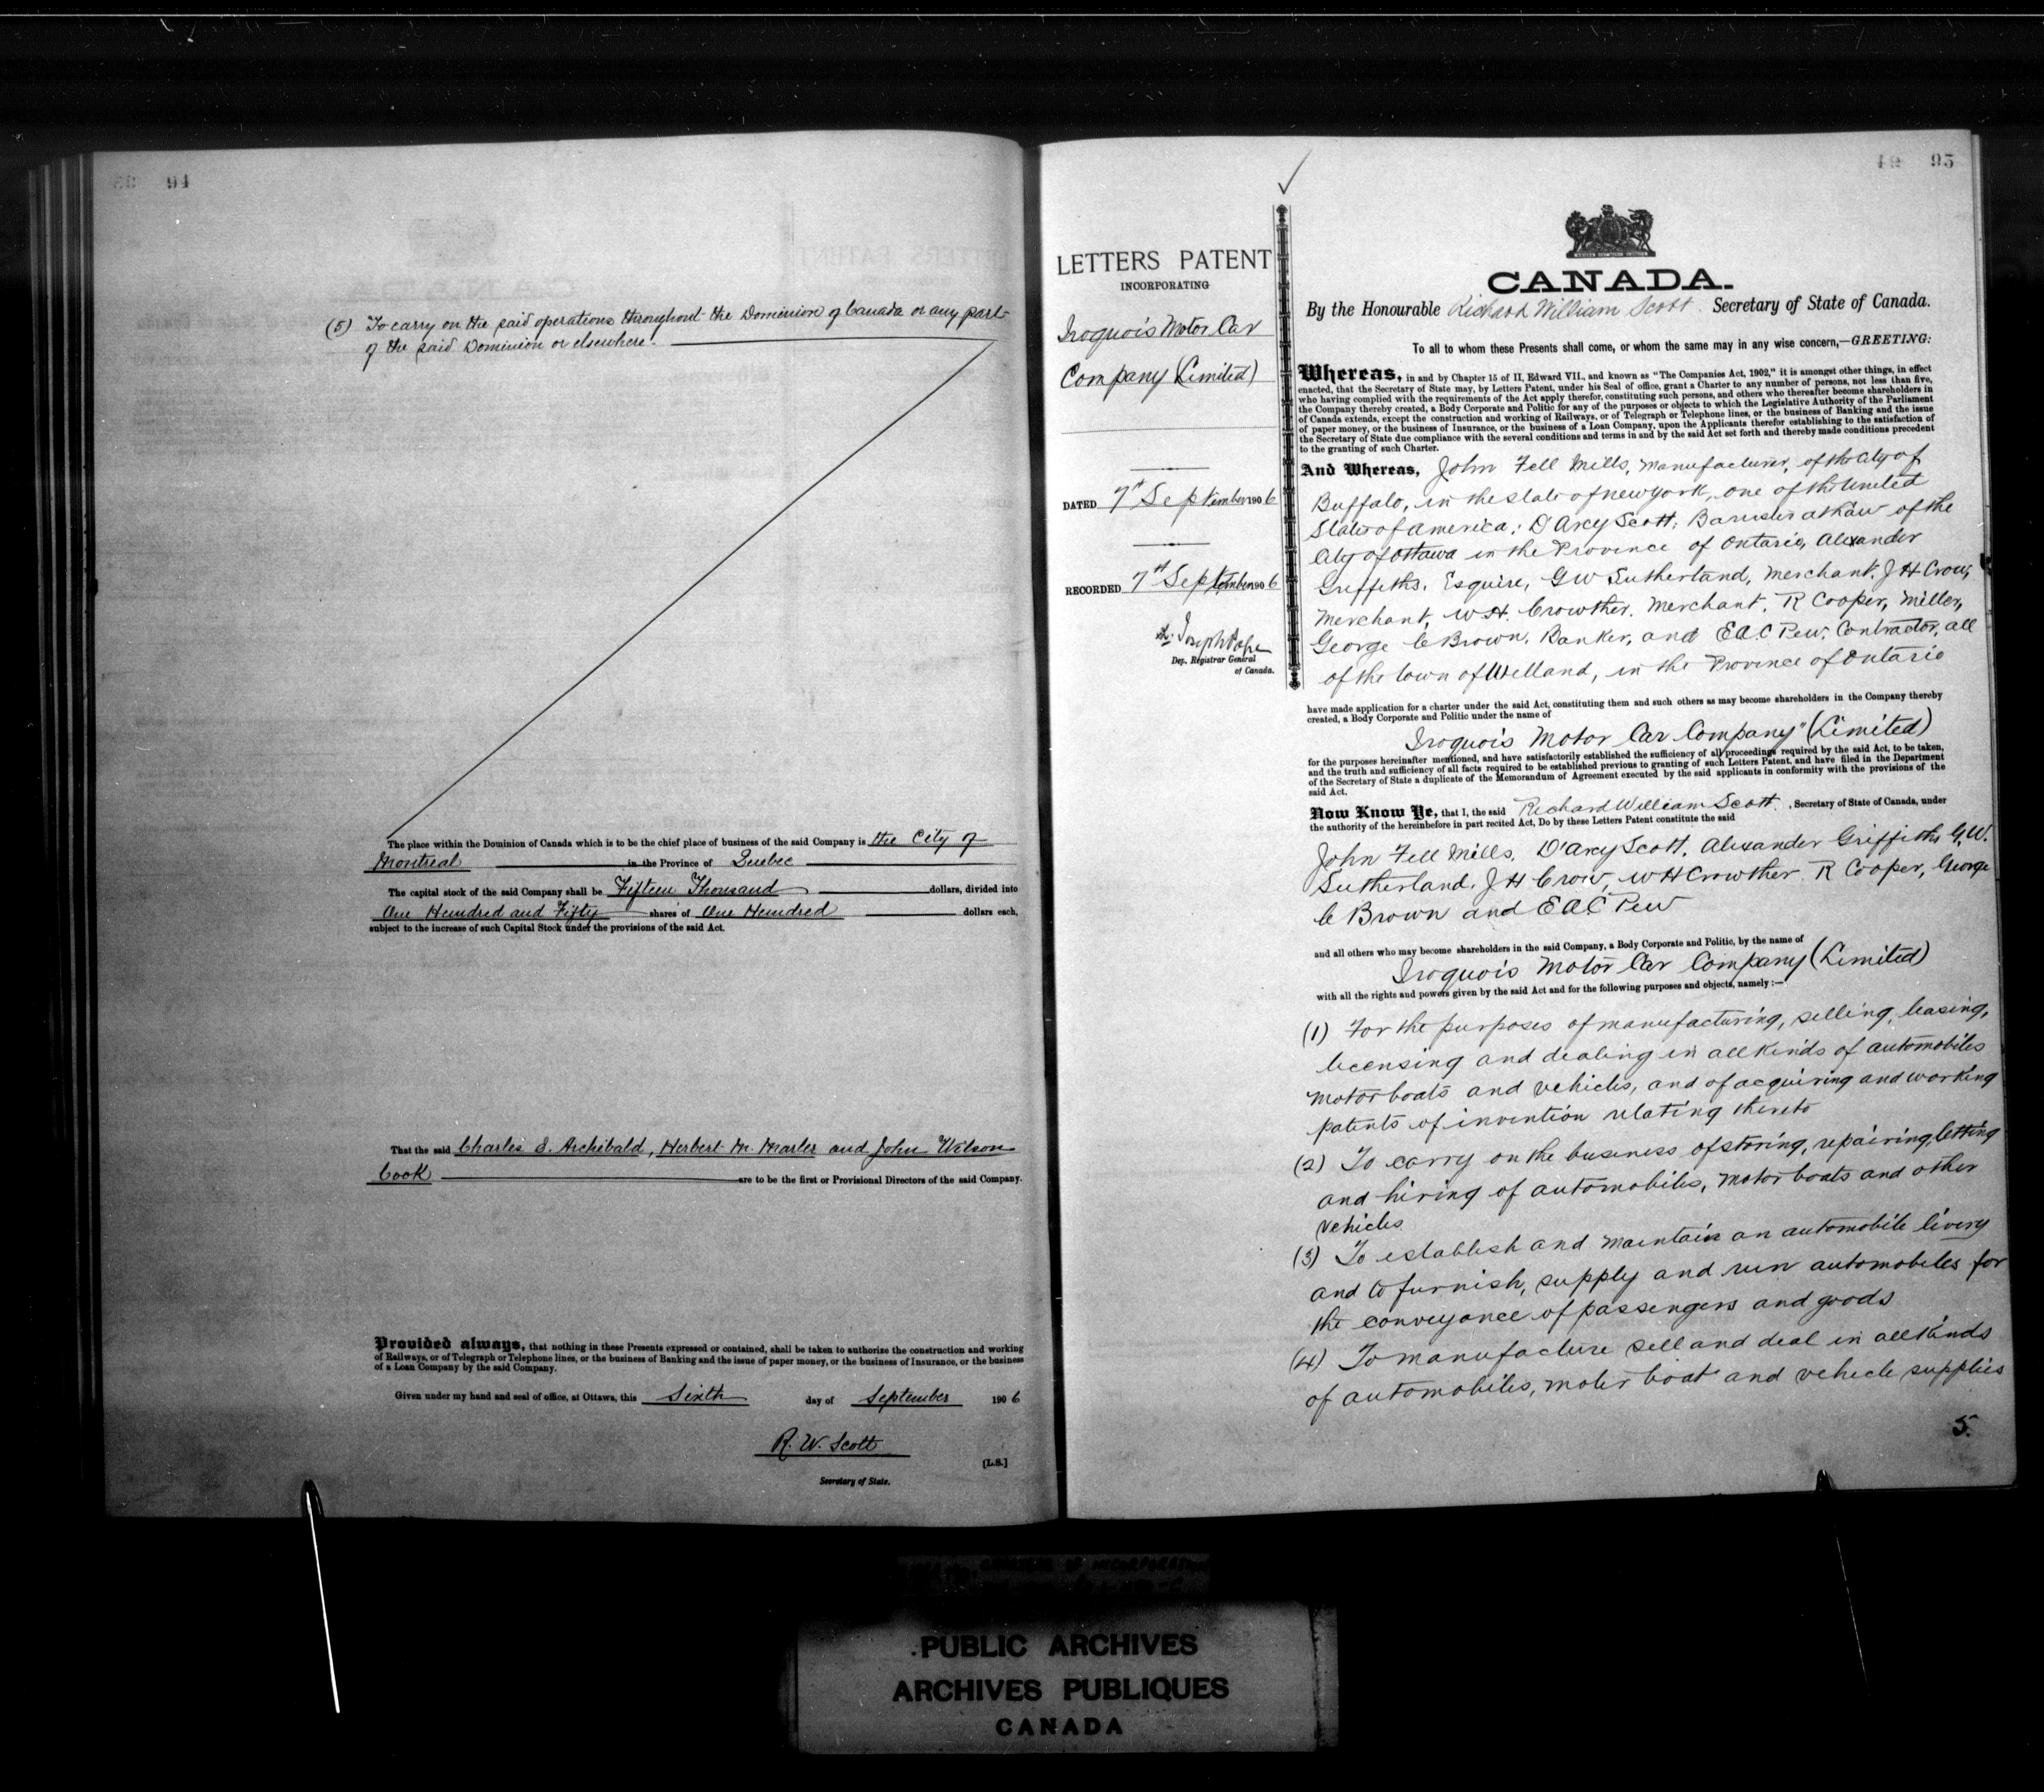 94
(5) To carry on the said operations throughout the Dominion of Canada or any part
of the said Dominion or elsewhere.
The place within the Dominion of Canada which is to be the chief place of business of the said Company is the City of
Montreal in the Province of Quebec
The capital stock of the said Company shall be Fifteen Thousand dollars, divided into
One Hundred and Fifty shares of One Hundred dollars each,
subject to the increase of such Capital Stock under the provisions of the said Act.
That the said Charles E. Archibald, Herbert M. Marler and John Wilson
Cook are to be the first or Provisional Directors of the said Company.
Provided always, that nothing in these Presents expressed or contained, shall be taken to authorize the construction and working
of Railways, or of Telegraph or Telephone lines, or the business of Banking and the issue of paper money, or the business of Insurance, or the business
of a Loan Company by the said Company.
Given under my hand and seal of office, at Ottawa, this Sixth day of September 1906
R. W. Scott
[L.S.]
Secretary of State.
49 95
LETTERS PATENT
INCORPORATING
Iroquois Motor Car
Company (Limited)
DATED 7th September 1906
RECORDED 7th September 1906
Joseph Pope
Dep. Registrar General
of Canada.
CANADA.
By the Honourable Richard William Scott Secretary of State of Canada.
To all to whom these Presents shall come, or whom the same may in any wise concern,—GREETING:
Whereas, in and by Chapter 15 of II, Edward VII., and known as "The Companies Act, 1902," it is amongst other things, in effect
enacted, that the Secretary of State may, by Letters Patent, under his Seal of office, grant a Charter to any number of persons, not less than five,
who having complied with the requirements of the Act apply therefor, constituting such persons, and others who thereafter become shareholders in
the Company thereby created, a Body Corporate and Politic for any of the purposes or objects to which the Legislative Authority of the Parliament
of Canada extends, except the construction and working of Railways, or of Telegraph or Telephone lines, or the business of Banking and the issue
of paper money, or the business of Insurance, or the business of a Loan Company, upon the Applicants therefor establishing to the satisfaction of
the Secretary of State due compliance with the several conditions and terms in and by the said Act set forth and thereby made conditions precedent
to the granting of such Charter.
And Whereas, John Fell Mills, Manufacturer, of the City of
Buffalo, in the state of New York, one of the United
States of America; D'Arcy Scott, Barrister at Law of the
City of Ottawa in the Province of Ontario, Alexander
Griffiths, Esquire, G W Sutherland, Merchant, J H Crow,
Merchant, W H. Crowther, Merchant, R Cooper, Miller,
George C Brown, Banker, and E A C Pew, Contractor, all
of the town of Welland, in the Province of Ontario
have made application for a charter under the said Act, constituting them and such others as may become shareholders in the Company thereby
created, a Body Corporate and Politic under the name of
Iroquois Motor Car Company" (Limited)
for the purposes hereinafter mentioned, and have satisfactorily established the sufficiency of all proceedings required by the said Act, to be taken,
and the truth and sufficiency of all facts required to be established previous to granting of such Letters Patent, and have filed in the Department
of the Secretary of State a duplicate of the Memorandum of Agreement executed by the said applicants in conformity with the provisions of the
said Act.
Now Know Ye, that I, the said Richard William Scott, Secretary of State of Canada, under
the authority of the hereinbefore in part recited Act, Do by these Letters Patent constitute the said
John Fell Mills, D'Arcy Scott, Alexander Griffiths G.W.
Sutherland, J H Crow, W H Crowther, R Cooper, George
C Brown and E A C Pew
and all others who may become shareholders in the said Company, a Body Corporate and Politic, by the name of
Iroquois Motor Car Company (Limited)
with all the rights and powers given by the said Act and for the following purposes and objects, namely:—
(1) For the purposes of manufacturing, selling, leasing,
licensing and dealing in all kinds of automobiles
motor boats and vehicles, and of acquiring and working
patents of invention relating thereto
(2) To carry on the business of storing, repairing, letting
and hiring of automobiles, motor boats and other
vehicles
(3) To establish and maintain an automobile livery
and to furnish, supply and run automobiles for
the conveyance of passengers and goods
(4) To manufacture sell and deal in all kinds
of automobiles, motor boat and vehicle supplies
5.
PUBLIC ARCHIVES
ARCHIVES PUBLIQUES
CANADA